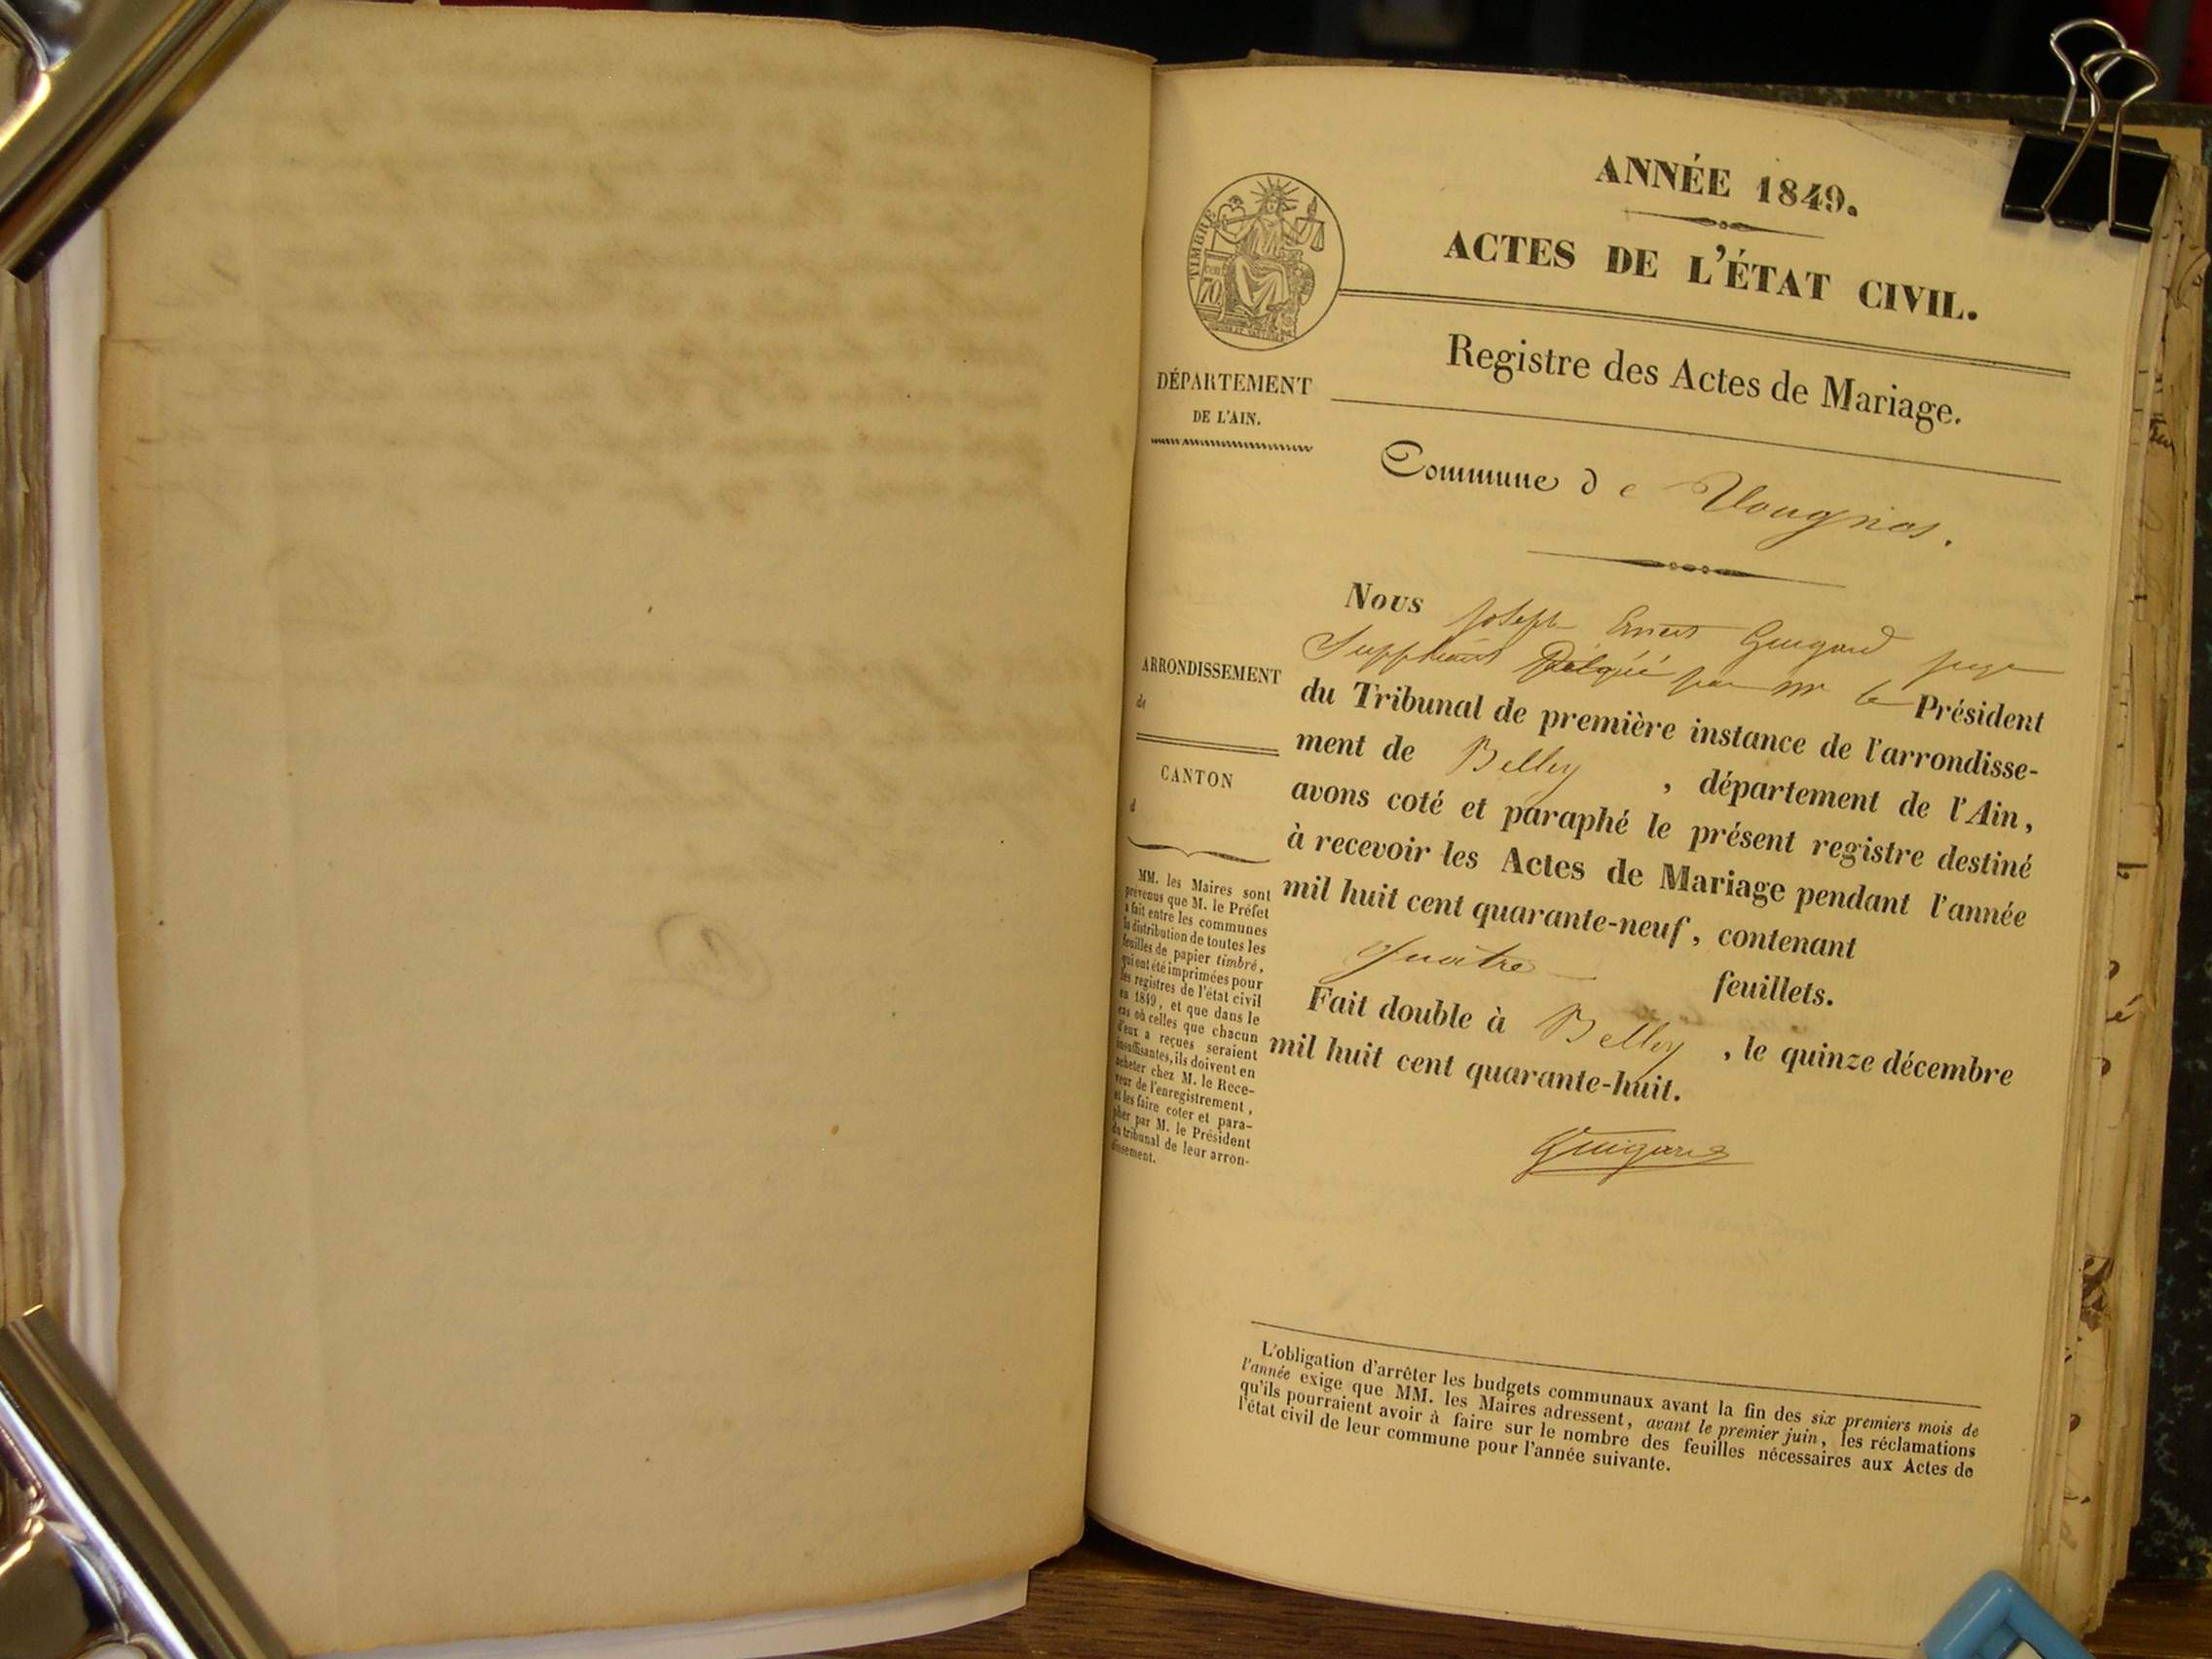 ANNÉE 1849.
ACTES DE L'ÉTAT CIVIL.
TIMBRE
70
Registre des Actes de Mariage.
DÉPARTEMENT
DE L'AIN.
Commune de Vougnes.
Nous Joseph Ernest Guigard juge
Suppléant Délégué par mr le Président
du Tribunal de première instance de l'arrondisse-
ment de Belley , département de l'Ain,
avons coté et paraphé le présent registre destiné
à recevoir les Actes de Mariage pendant l'année
mil huit cent quarante-neuf, contenant
quatre feuillets.
Fait double à Belley , le quinze décembre
mil huit cent quarante-huit.
Guigard
ARRONDISSEMENT
de
CANTON
d
MM. les Maires sont
prévenus que M. le Préfet
a fait entre les communes
la distribution de toutes les
feuilles de papier timbré,
qui ont été imprimées pour
les registres de l'état civil
en 1849, et que dans le
cas où celles que chacun
d'eux a reçues seraient
insuffisantes, ils doivent en
acheter chez M. le Rece-
veur de l'enregistrement,
et les faire coter et para-
pher par M. le Président
du tribunal de leur arron-
dissement.
L'obligation d'arrêter les budgets communaux avant la fin des six premiers mois de
l'année exige que MM. les Maires adressent, avant le premier juin, les réclamations
qu'ils pourraient avoir à faire sur le nombre des feuilles nécessaires aux Actes de
l'état civil de leur commune pour l'année suivante.